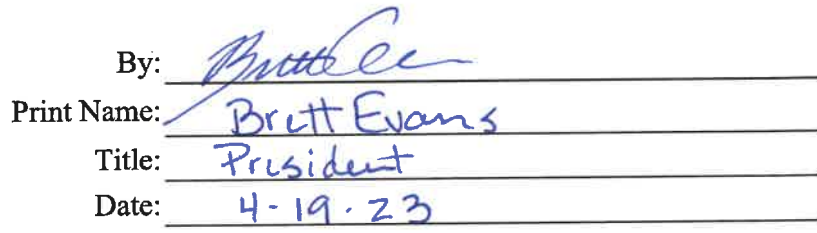 By: Brett Evans
Print Name: Brett Evans
Title: President
Date: 4-19-23